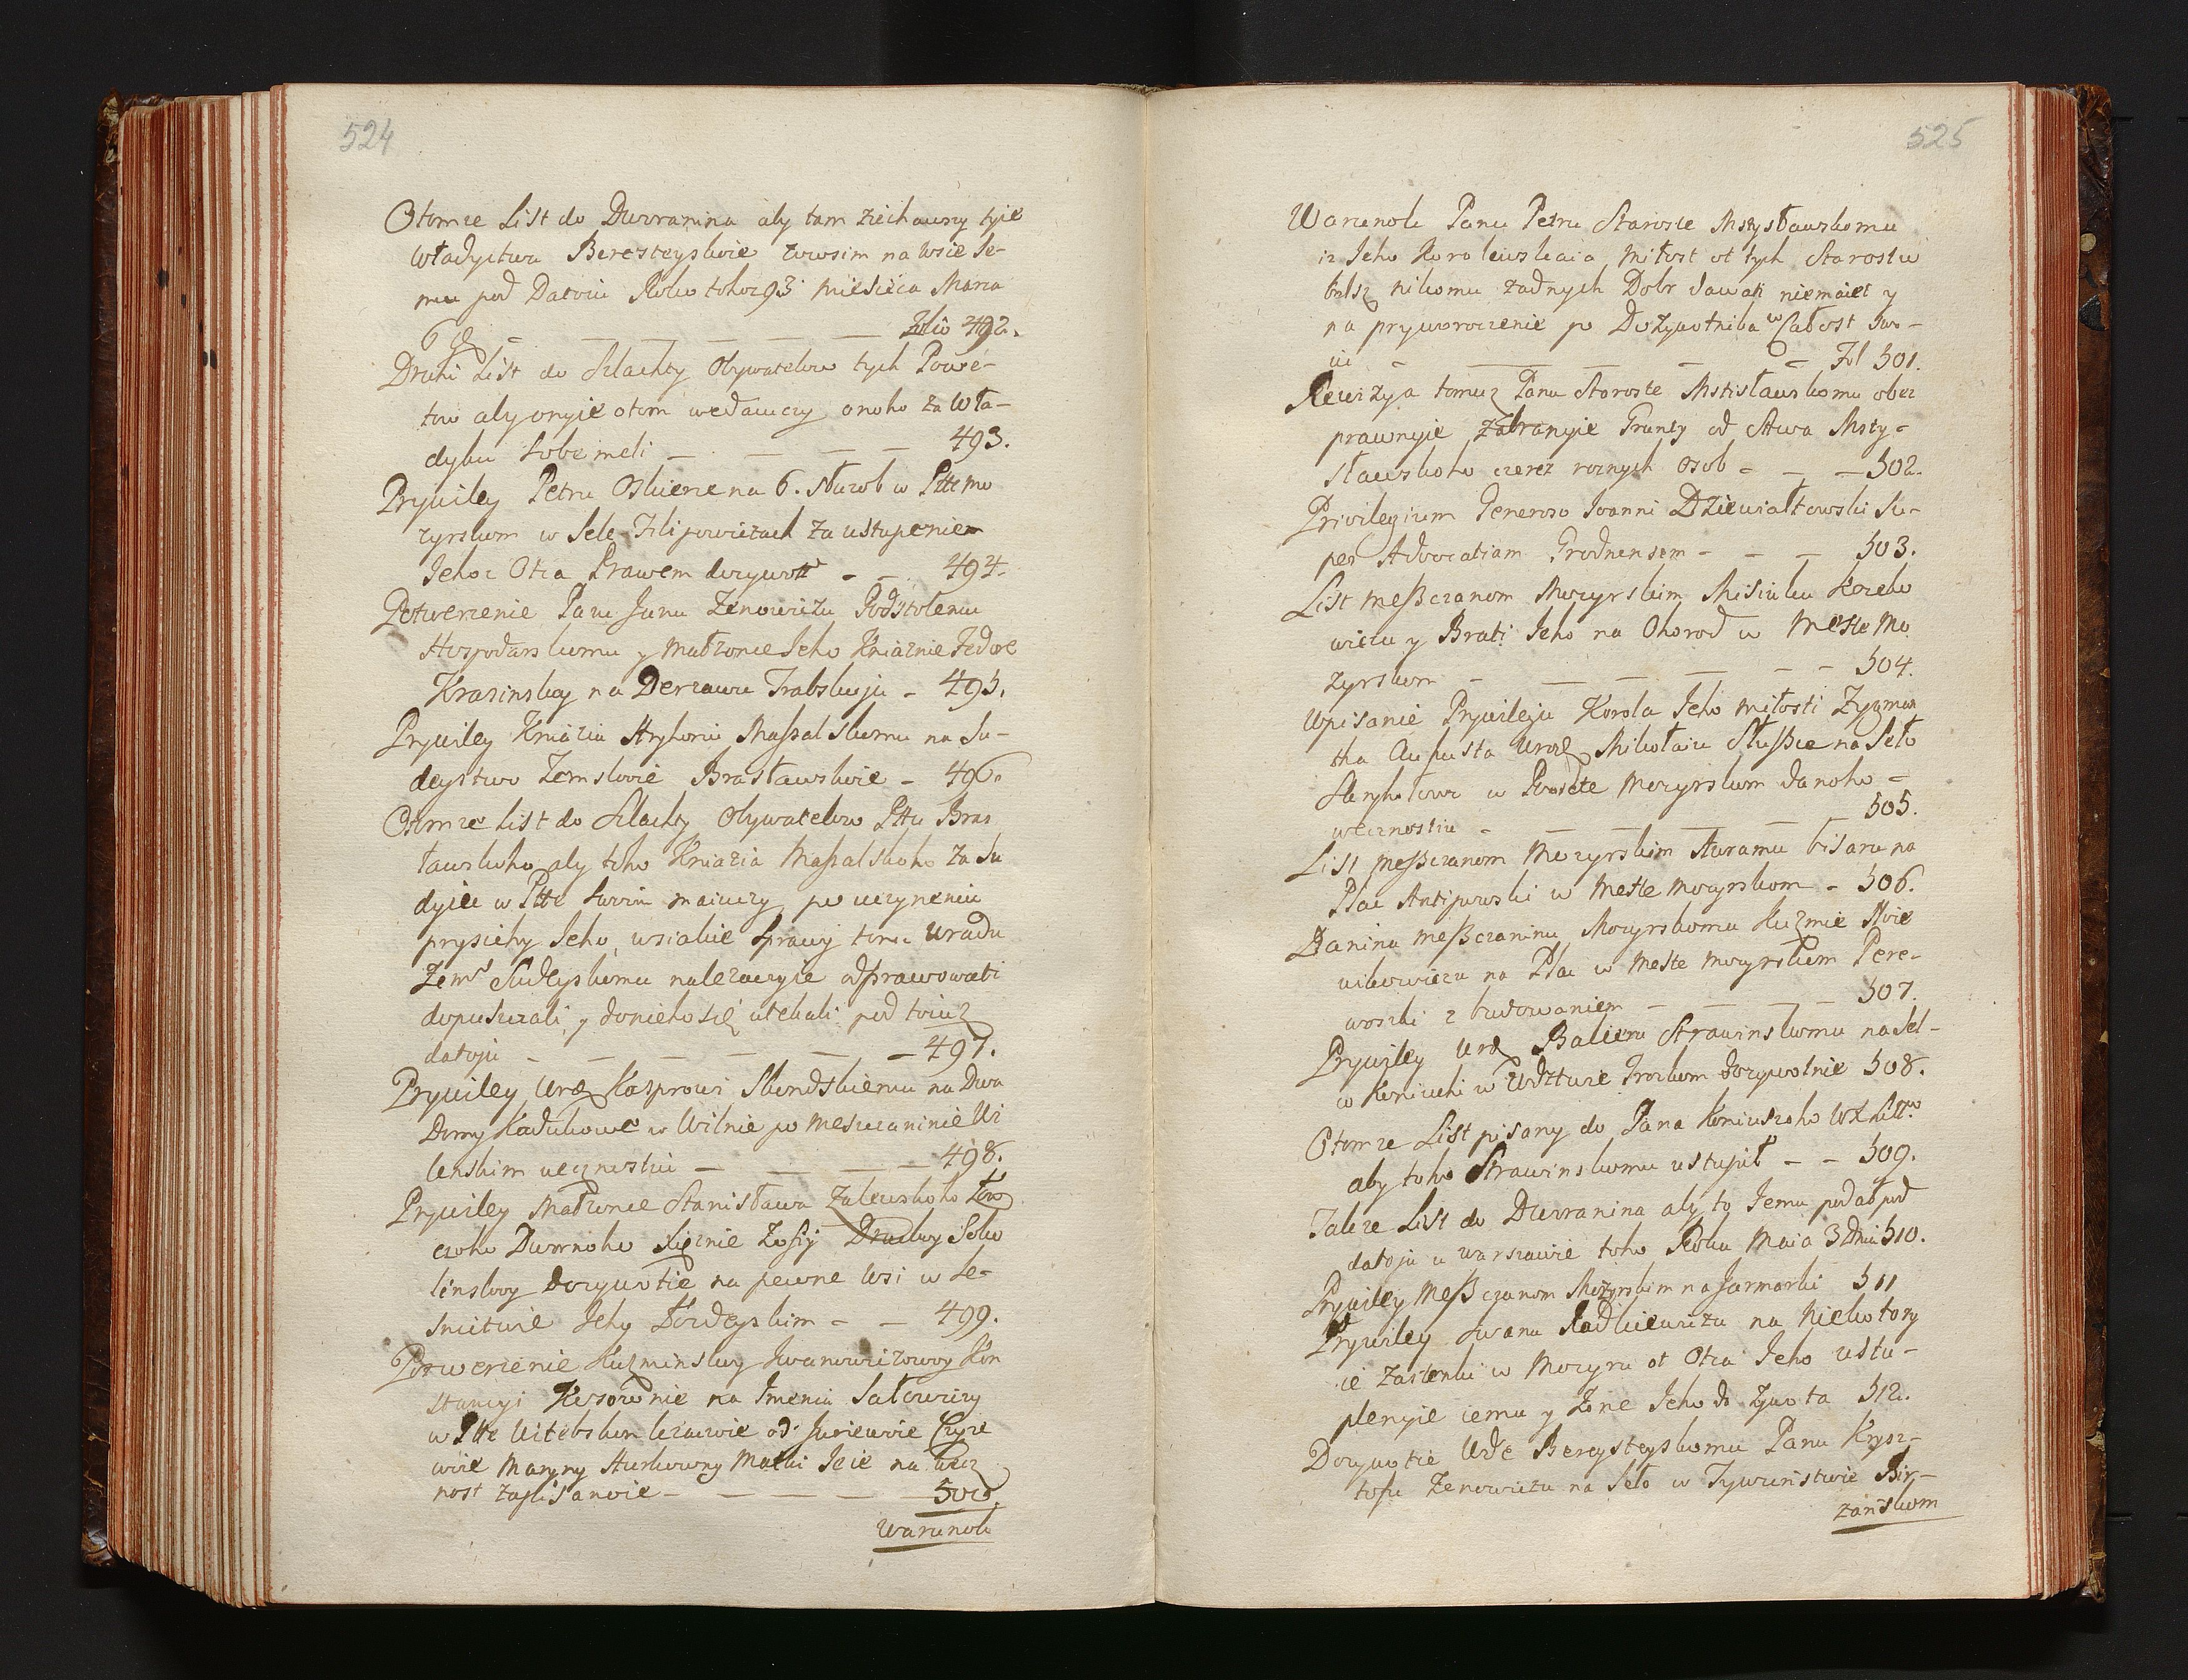 524
Otomze List do Dworanina aby tam ziechawszy tyie
Władyctwu Beresteyskoie zowsim na wsie Je-
mu pod Datoiu Roku tohoz 93 miesieca Marca
6 d. — — — — — Folio 492.
Druhi List do Szlachty Obywatelow tych Powe-
tow aby onyie otom wedaiuczy onoho za Wła-
dyku sobe meli — — — — 493.
Prywiley Petru Oskierce na 6. słuzob w Ptte Mo
zyrskom w Sele Filipowiczach za ustupeniem
Jehoz Otca Prawem dozywott — — 494.
Potwerzenie Panu Janu Zenowiczu Podstolemu
Hospodarskomu y Małzonce Jeho Kniaznie Fedore
Krasinskoy na Derzawu Trabskuju — 495.
Prywiley Kniaziu Hryhoriu Massalskomu na Su-
deystwo Zemskoie Brasławskoie — 496.
Otomze List do Szlachty Obywatelow Pttu Bras
ławskoho aby toho Kniazia Massalskoho za Su
dyiu w Ptte swoim maiuczy po uczyneniu
prysiehy Jeho, wsiakie sprawy tomu Uradu
Zems Sudeyskomu nalezaczyie odprawowati
dopuszczali y doniehosię utekali pod toiuz
datoju — — — — — — 497.
Prywiley Urod Kasprowi Skindskiemu na Dwa
Domy Kadukowe w Wilnie po Mesczaninie Wi
lenskim wecznostiu — — — — 498.
Prywiley Małzonce Stanisława Zalewskoho Łow
czoho Dwornoho Kięznie Zofij Druckoy Soko
linskoy dozywotie na pewne wsi w Le-
snictwie Jehy Łowdeyskim — — 499.
Potwerzenie Kuzminskoy Iwanowiczowoy Kon
stancyi Kisorownie na Imeniu Sałowiczy
w Ptte Witebskom lezaczoie od Juriewoie Czyze
woie Maryny Hurkowny Matki Jeie na wecz
nost zapisanoie — — — — 500.
Warunok
525
Warunok Panu Petru Staroste Mszysławskomu
iz Jeho Korolewskaia Miłost ot tych Starostw
bolsz nikomu zadnych Dobr dawati niemaiet y
na pryworoczenie po Dozywotnika w Całost swo-
iu — — — — — Fol 501.
Rewizya tomuz Panu Staroste Mstisławskomu obez
prawnyie zabranyie Grunty od Stwa Msty-
sławskoho czerez roznych osob — — — 502.
Privilegium Generoso Joanni Dziewiałtowski Su-
per Advocatiam Grodnensem — — — 503.
List Messczanom Mozyrskim Misiuku Kozeko
wiczu y Brati Jeho na Ohorod w Meste Mo
zyrskom — — — — — 504.
Wpisanie Prywileju Korola Jeho Miłosti Zygmun
tha Auhusta Urod Mikołaiu Słussce na Seło
Skryhołowo w Powete Mozyrskom danoho —
wecznostiu — — — — — 505.
List Messczanom Mozyrskim Awramu bisaru na
Plac Antipowski w Meste Mozyrskom — 506.
Danina Messczaninu Mozyrskomu Kuzmie Moie
wikowiczu na Plac w Meste Mozyrskom Pere-
woski z budowaniem — — — — 507.
Prywiley Urod Balceru Strawinskomu na Sel-
co Koniuchi w Wdztwie Trockom dozywotnie 508.
Otomze List pisany do Pana Koniuszoho WX Litto
aby toho Strawinskomu ustupił — — 509.
Takze List do Dworanina aby to Jemu podał pod
datoju w Warszawie toho Roku Maia 3 Dnia 510.
Prywiley Messczanom Mozyrskim na Jarmarki 511
Prywiley Iwanu Radkiewiczu na Niekotory
ie zascenki w Mozyru ot Otca Jeho ustu-
plenyie iemu y Zone Jeho do Zywota 512.
Dozywotie Wde Bereysteyskomu Panu Krysz-
tofu Zenowiczu na Seło w Tywunstwie Bir-
zanskom